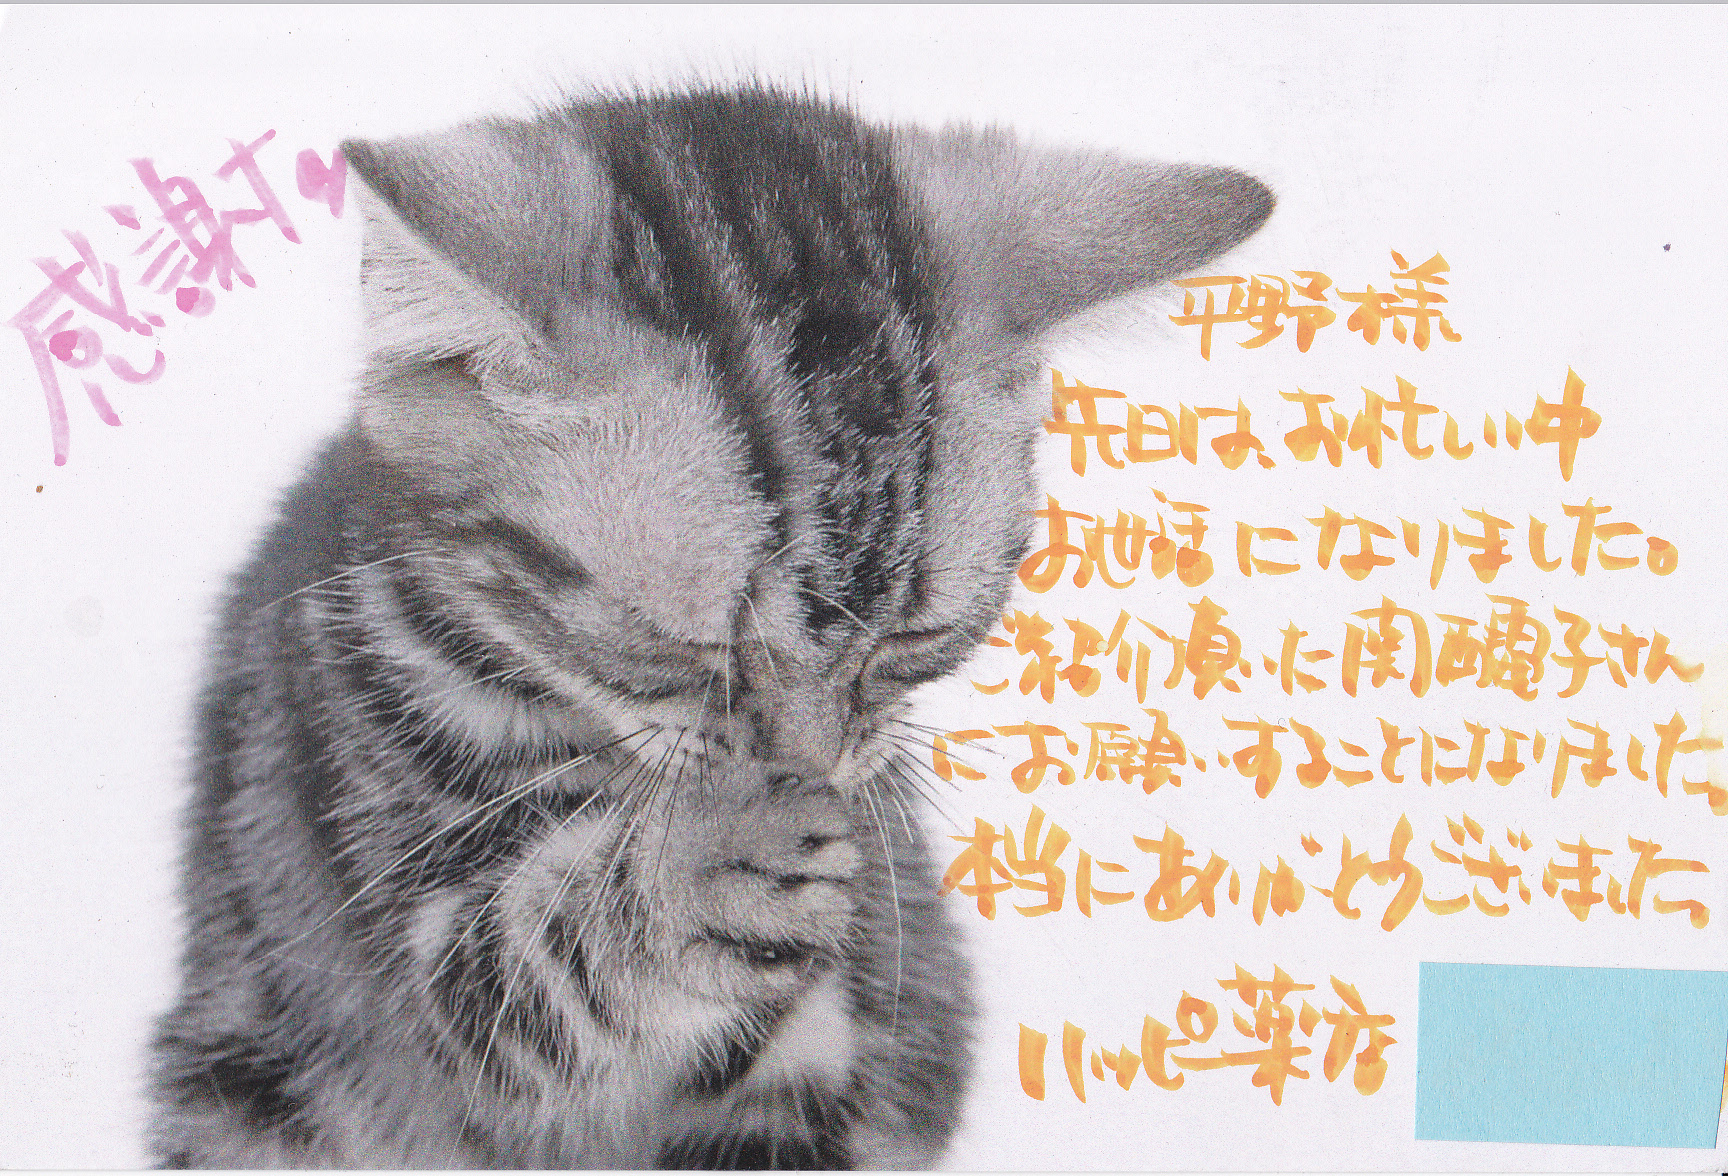 感謝
平野様
先日は、お忙しい中
お世話になりました。
ご紹介頂いた関醴子さん
にお願いすることになりました。
本当にありがとうございました。
ハッピー薬店